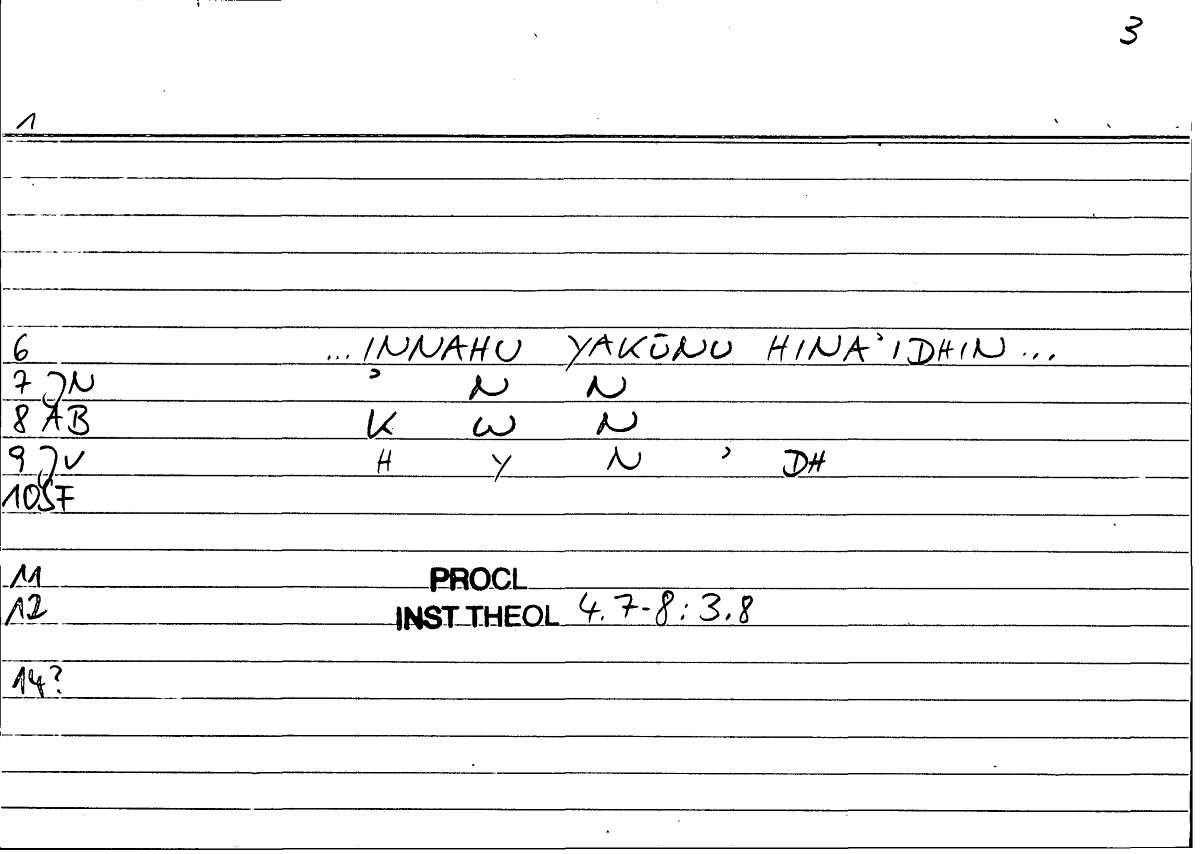 3
1
6 ... INNAHU YAKŪNU HINA'IDHIN ...
7 JN ' N N
8 AB K W N
9 JV H Y N ' DH
10SF
11 PROCL
12 INST THEOL 4.7-8:3.8
14?